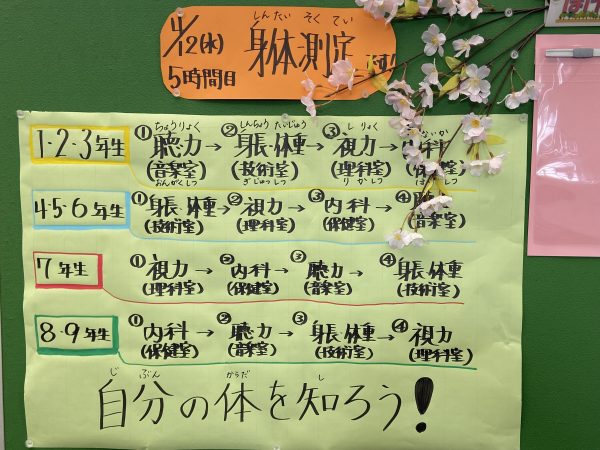 4/12(水)
5時間目
しんたい そくてい
身体測定です!!
ちょうりょく しんちょう たいじゅう しりょく ないか
1・2・3年生 ①聴力→②身長・体重→③視力→④内科
(音楽室) (技術室) (理科室) (保健室)
おんがくしつ ぎじゅつしつ りかしつ
4・5・6年生 ①身長・体重→②視力→③内科→④聴力
(技術室) (理科室) (保健室) (音楽室)
7年生 ①視力→②内科→③聴力→④身長・体重
(理科室) (保健室) (音楽室) (技術室)
8・9年生 ①内科→②聴力→③身長・体重→④視力
(保健室) (音楽室) (技術室) (理科室)
じぶん からだ し
自分の体を知ろう!